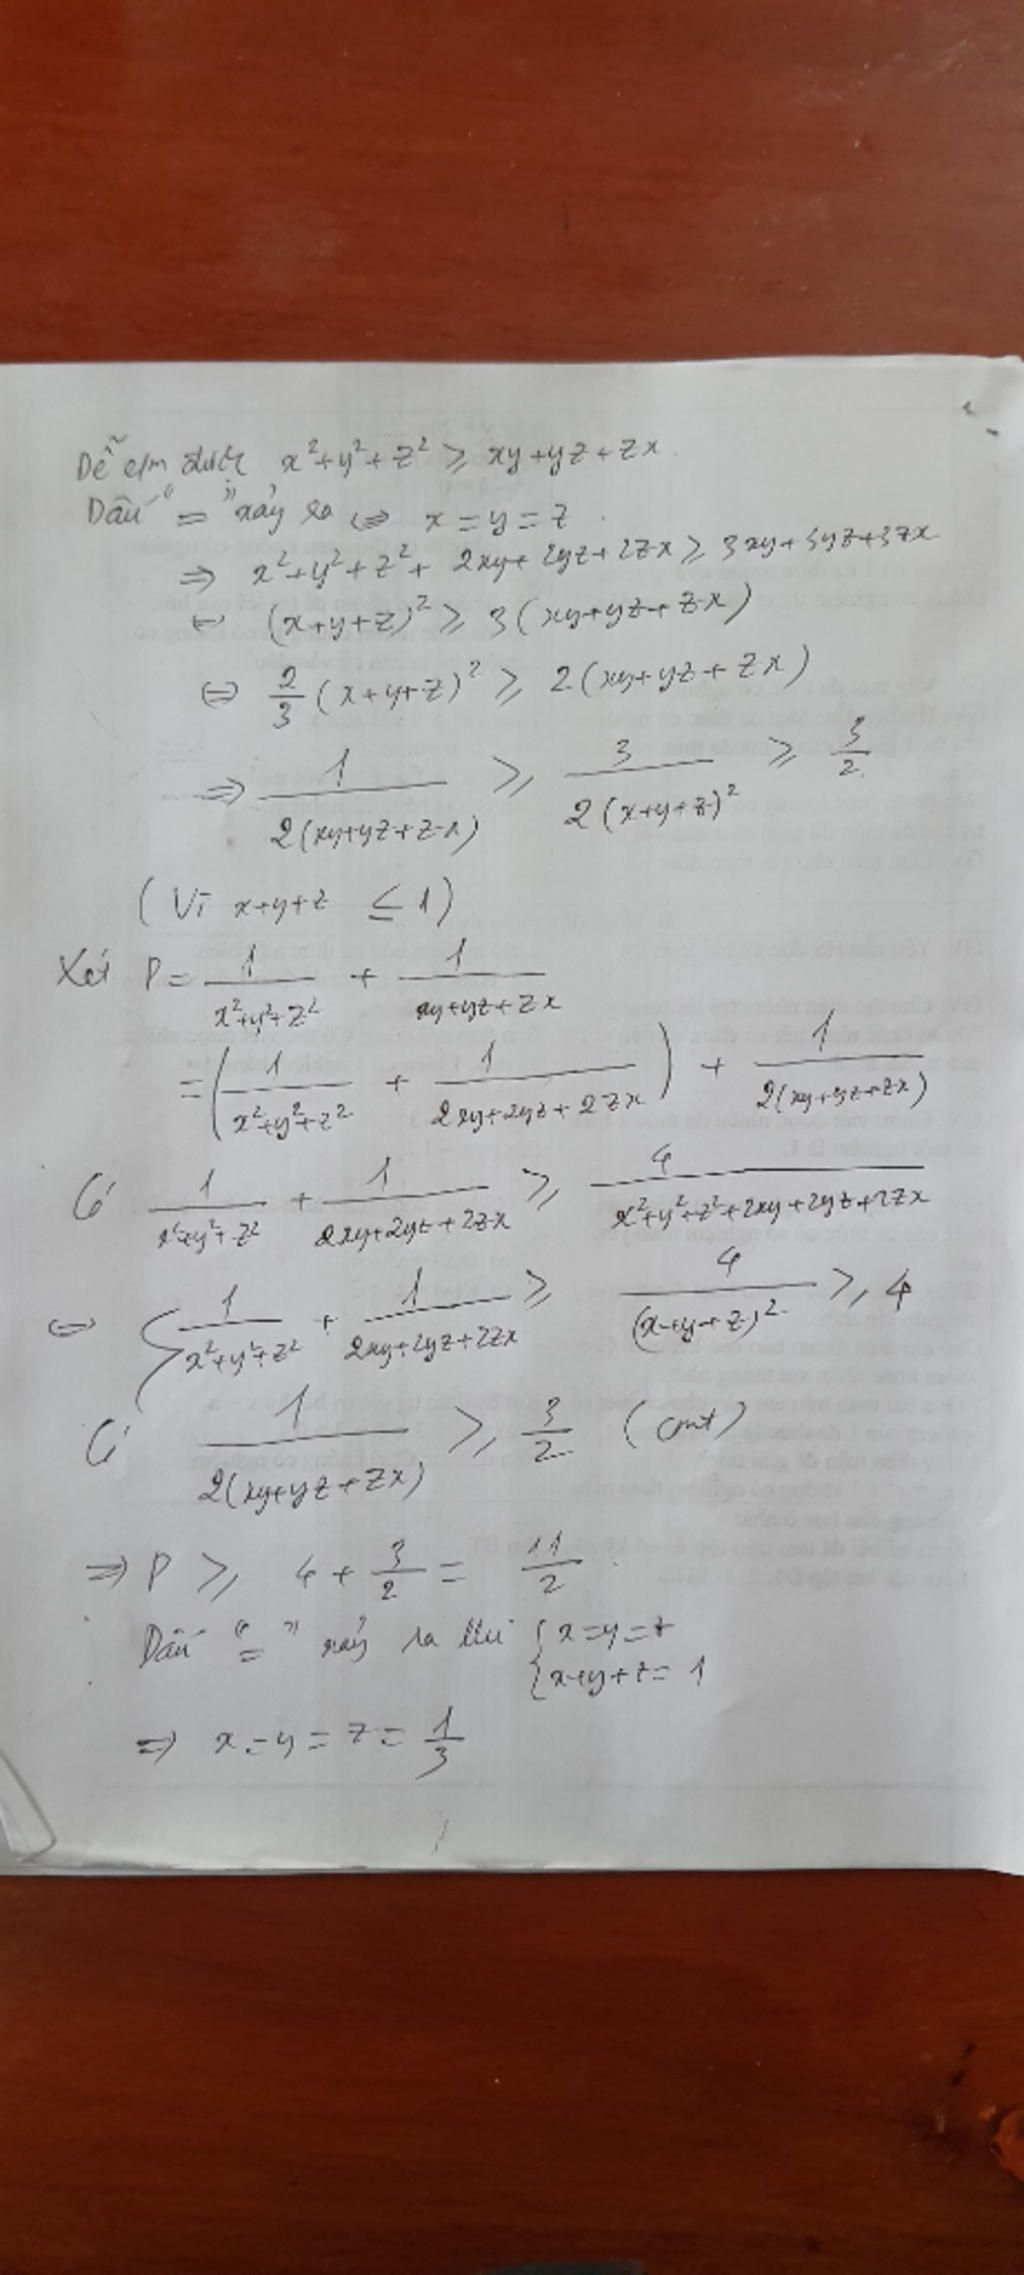 Dễ c/m được x²+y²+z² ≥ xy+yz+zx.
Dấu "=" xảy ra ⇔ x=y=z.
⇒ x²+y²+z²+2xy+2yz+2zx ≥ 3xy+3yz+3zx
⇔ (x+y+z)² ≥ 3(xy+yz+zx)
⇔ 2/3 (x+y+z)² ≥ 2(xy+yz+zx)
⇒ 1/(2(xy+yz+zx)) ≥ 3/(2(x+y+z)²) ≥ 3/2
(Vì x+y+z ≤ 1)
Xét P = 1/(x²+y²+z²) + 1/(xy+yz+zx)
= (1/(x²+y²+z²) + 1/(2xy+2yz+2zx)) + 1/(2(xy+yz+zx))
Có 1/(x²+y²+z²) + 1/(2xy+2yz+2zx) ≥ 4/(x²+y²+z²+2xy+2yz+2zx)
⇔ 1/(x²+y²+z²) + 1/(2xy+2yz+2zx) ≥ 4/(x+y+z)² ≥ 4
Có 1/(2(xy+yz+zx)) ≥ 3/2 (cmt)
⇒ P ≥ 4 + 3/2 = 11/2.
Dấu "=" xảy ra khi { x=y=z
{ x+y+z=1
⇒ x=y=z=1/3